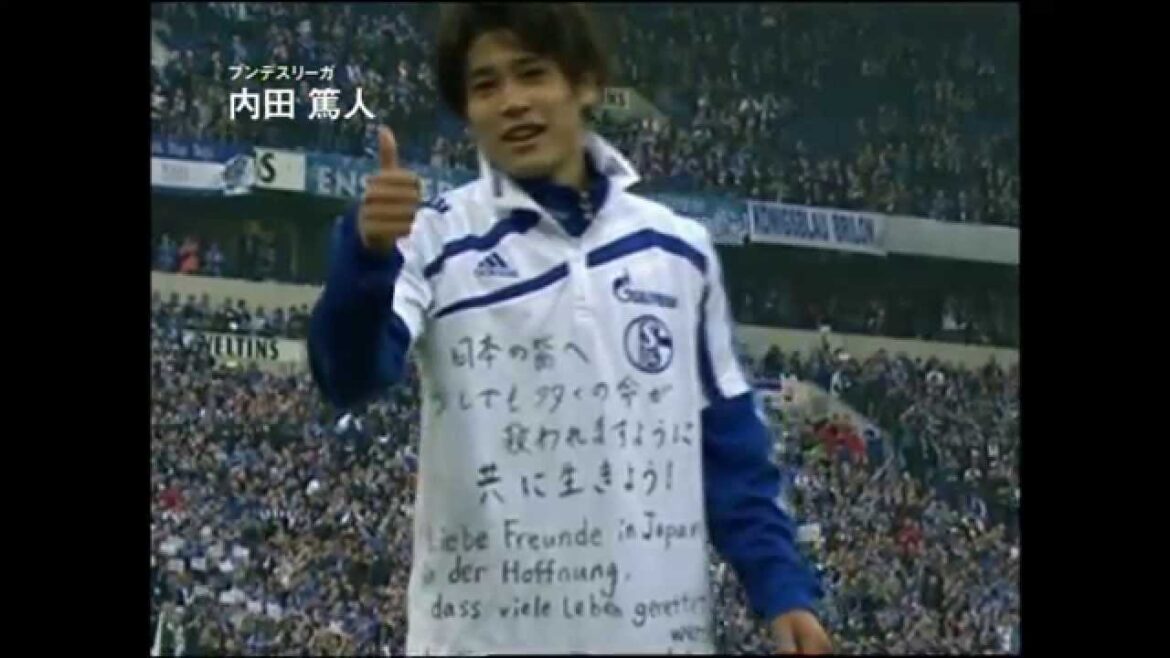 ブンデスリーガ
内田 篤人
ENS
KÖNIGSBLAU BRILON
VELTINS
adidas
GAZPROM
日本の皆へ
少しでも多くの命が
救われますように
共に生きよう!
Liebe Freunde in Japan
in der Hoffnung,
dass viele Leben gerettet
werd